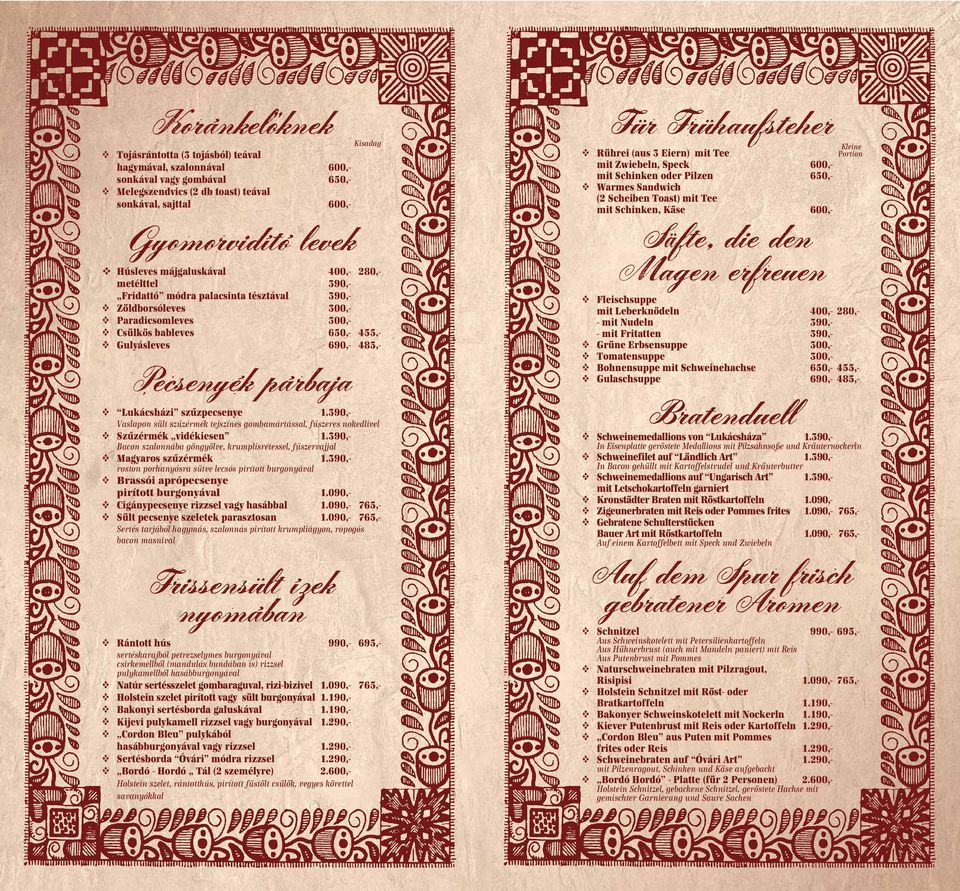 Koránkelőknek
Kisadag
Tojásrántotta (3 tojásból) teával
hagymával, szalonnával 600,-
sonkával vagy gombával 650,-
Melegszendvics (2 db toast) teával
sonkával, sajttal 600,-
Gyomorvidító levek
Húsleves májgaluskával 400,- 280,-
metélttel 390,-
„Fridattó" módra palacsinta tésztával 390,-
Zöldborsóleves 300,-
Paradicsomleves 300,-
Csülkös bableves 650,- 455,-
Gulyásleves 690,- 485,-
Pecsenyék párbaja
"Lukácsházi" szűzpecsenye 1.590,-
Vaslapon sült szűzérmék tejszínes gombamártással, fűszeres nokedlivel
Szűzérmék „vidékiesen" 1.590,-
Bacon szalonnába göngyölve, krumplisrétessel, fűszervajjal
Magyaros szűzérmék 1.590,-
roston porhanyósra sütve lecsós pirított burgonyával
Brassói aprópecsenye
pirított burgonyával 1.090,-
Cigánypecsenye rizzsel vagy hasábbal 1.090,- 765,-
Sült pecsenye szeletek parasztosan 1.090,- 765,-
Sertés tarjából hagymás, szalonnás pirított krumpliágyon, ropogós
bacon masnival
Frissensült ízek
nyomában
Rántott hús 990,- 695,-
sertéskarajból petrezselymes burgonyával
csirkemellből (mandulás bundában is) rizzsel
pulykamellből hasábburgonyával
Natúr sertésszelet gombaraguval, rizi-bizivel 1.090,- 765,-
Holstein szelet pirított vagy sült burgonyával 1.190,-
Bakonyi sertésborda galuskával 1.190,-
Kijevi pulykamell rizzsel vagy burgonyával 1.290,-
„Cordon Bleu" pulykából
hasábburgonyával vagy rizzsel 1.290,-
Sertésborda "Óvári" módra rizzsel 1.290,-
„Bordó - Hordó „ Tál (2 személyre) 2.600,-
Holstein szelet, rántotthús, pirított füstölt csülök, vegyes körettel
savanyókkal
Für Frühaufsteher
Kleine
Portion
Rührei (aus 3 Eiern) mit Tee
mit Zwiebeln, Speck 600,-
mit Schinken oder Pilzen 650,-
Warmes Sandwich
(2 Scheiben Toast) mit Tee
mit Schinken, Käse 600,-
Säfte, die den
Magen erfreuen
Fleischsuppe
mit Leberknödeln 400,- 280,-
- mit Nudeln 390,-
- mit Fritatten 390,-
Grüne Erbsensuppe 300,-
Tomatensuppe 300,-
Bohnensuppe mit Schweinehachse 650,- 455,-
Gulaschsuppe 690,- 485,-
Bratenduell
Schweinemedallions von "Lukácsháza" 1.590,-
In Eisenplatte geröstete Medallions mit Pilzsahnsoße und Kräuternockerln
Schweinefilet auf "Ländlich Art" 1.590,-
In Bacon gehüllt mit Kartoffelstrudel und Kräuterbutter
Schweinemedallions auf "Ungarisch Art" 1.590,-
mit Letschokartoffeln garniert
Kronstädter Braten mit Röstkartoffeln 1.090,-
Zigeunerbraten mit Reis oder Pommes frites 1.090,- 765,-
Gebratene Schulterstücken
Bauer Art mit Röstkartoffeln 1.090,- 765,-
Auf einem Kartoffelbett mit Speck und Zwiebeln
Auf dem Spur frisch
gebratener Aromen
Schnitzel 990,- 695,-
Aus Schweinskotelett mit Petersilienkartoffeln
Aus Hühnerbrust (auch mit Mandeln paniert) mit Reis
Aus Putenbrust mit Pommes
Naturschweinebraten mit Pilzragout,
Risipisi 1.090,- 765,-
Holstein Schnitzel mit Röst- oder
Bratkartoffeln 1.190,-
Bakonyer Schweinskotelett mit Nockerln 1.190,-
Kiever Putenbrust mit Reis oder Kartoffeln 1.290,-
„Cordon Bleu" aus Puten mit Pommes
frites oder Reis 1.290,-
Schweinebraten auf "Óvári Art" 1.290,-
mit Pilzenragout, Schinken und Käse aufgebackt
„Bordó Hordó" - Platte (für 2 Personen) 2.600,-
Holstein Schnitzel, gebackene Schnitzel, geröstete Hachse mit
gemischter Garnierung und Saure Sachen